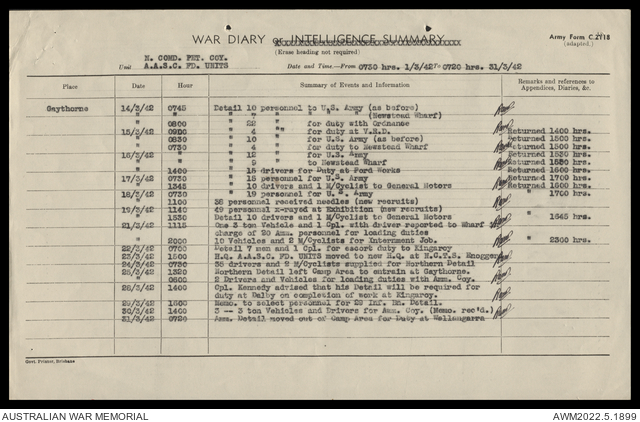 WAR DIARY or INTELLIGENCE SUMMARY
Army Form C.2118
(adapted.)
(Erase heading not required)
N. COMD. PET. COY.
Unit A.A.S.C. FD. UNITS Date and Time.—From 0730 hrs. 1/3/42 To 0720 hrs. 31/3/42
Place Date Hour Summary of Events and Information Remarks and references to Appendices, Diaries, &c.
Gaythorne 14/3/42 0745 Detail 10 personnel to U.S. Army (as before)
" " " 7 " " (Newstead Wharf)
" 0800 " 22 " for duty with Ordnance
15/3/42 0900 " 4 " for duty at V.R.D. Returned 1400 hrs.
" 0830 " 10 " for U.S. Army (as before) Returned 1500 hrs.
" 0730 " 4 " for duty to Newstead Wharf Returned 1500 hrs.
16/3/42 " " 12 " for U.S. Army Returned 1530 hrs.
" " " 9 " to Newstead Wharf Returned 1530 hrs.
" 1400 " 15 drivers for Duty at Ford Works Returned 1600 hrs.
17/3/42 0730 " 15 personnel for U.S. Army Returned 1700 hrs.
" 1345 " 10 drivers and 1 M/Cyclist to General Motors Returned 1500 hrs.
18/3/42 0730 " 19 personnel for U.S. Army " 1700 hrs.
" 1100 36 personnel received needles (new recruits)
19/3/42 1140 49 personnel x-rayed at Exhibition (new recruits)
" 1530 Detail 10 drivers and 1 M/Cyclist to General Motors " 1645 hrs.
21/3/42 1115 One 3 ton Vehicle and 1 Cpl. with driver reported to Wharf i/
charge of 20 Amm. personnel for loading duties
" 2000 10 Vehicles and 2 M/Cyclists for Internment Job. " 2300 hrs.
22/3/42 0700 Detail 7 men and 1 Cpl. for escort duty to Kingaroy
23/3/42 1500 H.Q. A.A.S.C. FD. UNITS moved to new H.Q. at H.C.T.S. Enogger
24/3/42 0730 38 drivers and 2 M/Cyclists supplied for Northern Detail
25/3/42 1320 Northern Detail left Camp Area to entrain at Gaythorne.
" 0600 2 Drivers and Vehicles for loading duties with Amm. Coy.
26/3/42 1400 Cpl. Kennedy advised that his Detail will be required for
duty at Dalby on completion of work at Kingaroy.
29/3/42 1500 Memo. to select personnel for 29 Inf. Bn. Detail.
30/3/42 1400 3 -- 3 ton Vehicles and Drivers for Amm. Coy. (Memo. rec'd.)
31/3/42 0720 Amm. Detail moved out of Camp Area for Duty at Wallangarra
Govt. Printer, Brisbane
AUSTRALIAN WAR MEMORIAL AWM2022.5.1899